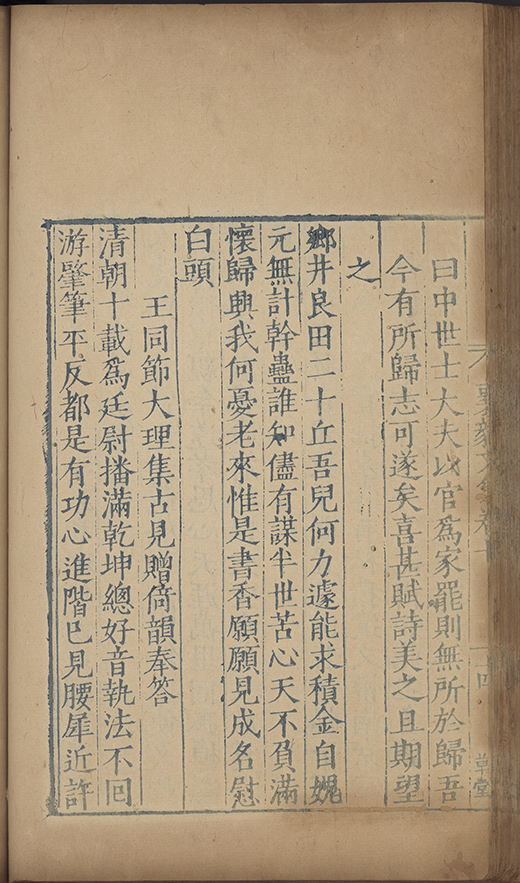 曰中世士大夫以官為家罷則無所於歸吾
今有所歸志可遂矣喜甚賦詩美之且期望
之
鄉井良田二十丘吾兒何力遽能求積金自媿
元無計幹蠱誰知儘有謀半世苦心天不負滿
懷歸興我何憂老來惟是書香願願見成名慰
白頭
王同節大理集古見贈倚韻奉答
清朝十載爲廷尉播滿乾坤總好音執法不回
游肇筆平反都是有功心進階已見腰犀近許